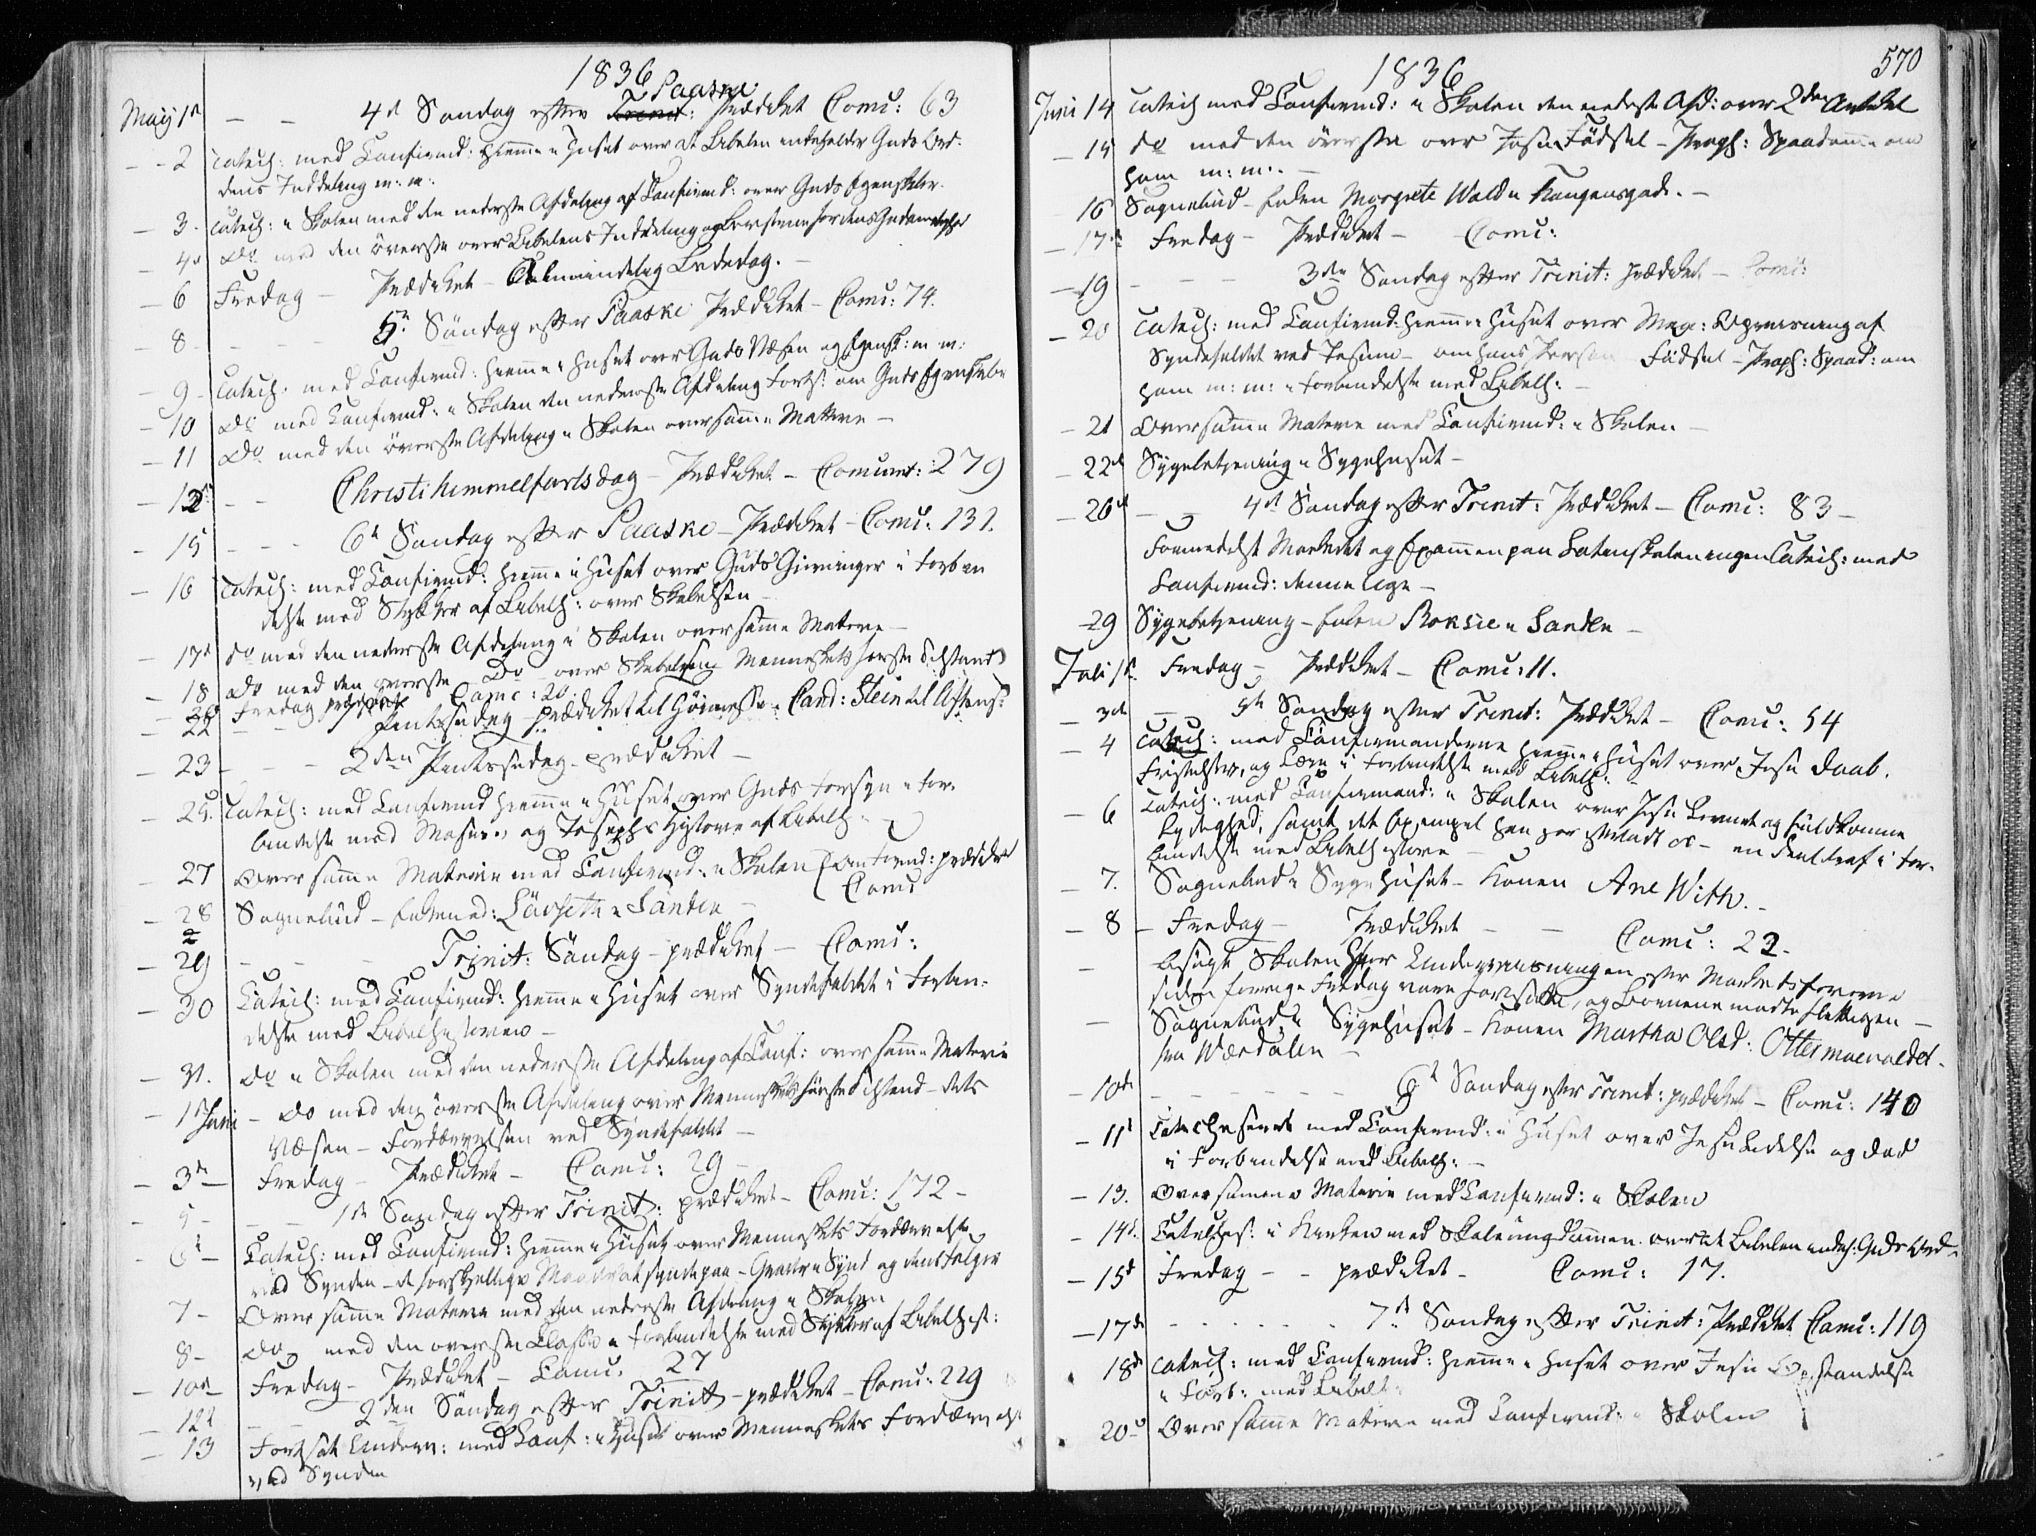 1836
Maij 1ste – – 4de Søndag efter Trinit: Paaske Prædiket Comu: 63
– 2 Catech: med Confirmd: hiemme i Huset over at Bibelen indeholder Guds Ord.
dens Inddeling m: m:
– 3. Catech: i Skolen med den nederste Afdeling af Confirmd: over Guds Egenskaber.
– 4de Do med den överste over Bibelens Inddeling og
– 6 Fredag – Prædiket – Almindelig Bededag. –
– 8 – – – 5te Søndag efter Paaske Prædiket – Comu: 74.
– 9 – Catech. med Confirmd: hiemme i Huset over Guds Væsen og Egensk: m m:
– 10 Do med Confirmd: i Skolen den nederste Afdeling forts: om Guds Egenskaber
– 11 Do med den överste Afdeling i Skolen over samme Materie –
– 12 – – Christi himmelfartsdag – Prædiket – Comunt: 279
– 15 – – – 6te Søndag efter Paaske – Prædiket – Comu: 131.
– 16 Catech: med Confirmd: hiemme i Huset over Guds Gierninger i Forbin
delse med Stykker af Bibelh: over Skabelsen –
– 17de do med den nederste Afdeling i Skolen over samme Materie –
– 18 do med den överste Do over Skabelsen Menneskets første Tilstand
– 20 Fredag prædiket Comc: 20
– 22 – – Pintsedag – prædiket til Høimesse – Cand: Stein til Aftens:
– 23 – – – 2den Pintsedag – prædiket –
– 25. Catech: med Confirmd hiemme i Huset over Guds Forsyn i For-
bindelse med Moses og Josephs Historie af Bibelh –
– 27 Over samme Materie med Confirmd: i Skolen Confirmd: prædiket
Comu
– 28 Sognebud – Løvseth i Sanden –
– 29 – – – Trinit: Søndag – prædiket – Comu:
– 30 Catech: med Confirmd: hiemme i Huset over Syndefaldet i Forbin-
delse med Bibelhistorien –
– 31. Do i Skolen med den nederste Afdeling af Conf: over samme Materie
– 1ste Juni – Do med den överste Afdeling over Menneskets første Tilstand – dets
Væsen – Fordærvelsen ved Syndefaldet –
– 3de – Fredag – Prædiket – Comu: 29 –
– 5 – – – 1ste Søndag efter Trinit: prædiket – Comu: 172 –
– 6te – Catech: med Confirmd: hiemme i Huset over Menneskets Fordærvelse
ved Synden – de forskjellige Maader at synde paa – Grader i Synd og dens Følger
7 – Over samme Materie med den nederste Afdeling i Skolen
8 – Do med den överste Classe i Forbindelse med Stykker af Bibelhist:
– 10de Fredag – Prædiket – Comu. 27
– 12te – – 2den Søndag efter Trinit – prædiket – Comu: 229
– 13 Fortsat Underv: med Conf: i Huset over Menneskets Fordærvelse
ved Synden
1836 570
Juni 14 Catech med Confirmd: i Skolen den nederste Afd: over 2den Artikel
– 15 do med den överste over Jesu Fødsel – Proph: Spaadomme om
ham m: m: –
– 16 Sognebud – Margrete Wald i Kongensgade. –
– 17de Fredag – Prædiket – Comu:
– 19 – – – 3die Søndag efter Trinit: prædiket – Comu:
– 20 Catech: med Confirmd: hiemme i Huset over Opreisning af
Syndefaldet ved Jesum – om hans Person Fødsel – Proph: Spaad: om
ham m: m: i Forbindelse med Bibelh: –
– 21 Over samme Materie med Confirmd: i Skolen –
– 22de Sygebetjening i Sygehuset –
– 26de – – 4de Søndag efter Trinit: Prædiket – Comu: 83 –
Formedelst Markedet og Examen paa Latinskolen ingen Catech: med
Confirmd: denne Uge –
– 29 Sygebetjening – Roksie i Sanden –
Juli 1ste Fredag – Prædiket – Comu: 11.
– 3de – 5te Søndag efter Trinit: Prædiket – Comu: 54
– 4 Catech: med Confirmanderne hiemme i Huset over Jesu Daab.
Fristelser, og Lære i Forbindelse med Bibelh: –
– 6 Catech: med Confirmand: i Skolen over Jesu Levnet og fuldkomne
Lydighed, samt det Exempel han har efterladt os – en Deel deraf i For-
bindelse med Bibelhistorie –
– 7. Sognebud i Sygehuset – Konen Ane With. –
– 8 – Fredag – Prædiket – – Comu: 22 –
– Besøgt Skolen hvor Underviisningen efter Markedsferierne
siden forrige Fredag være fortsatte, og Børnene mødte flittigen –
– Sognebud i Sygehuset – Konen Martha Olsd: Ottermoevaldet.
fra Wærdalen –
– 10de – – – – – 6te Søndag efter Trinit: prædiket – Comu: 140
– 11te Catechiseret med Confirmd: i Huset over Jesu Lidelse og Død
i Forbindelse med Bibelh: –
– 13. Over samme Materie med Confirmd: i Skolen
– 14de. Catechis: i Kirken med Skoleungdommen over at Bibelen indeh: Guds Ord –
– 15de Fredag – – prædiket – Comu: 17.
– 17de – – – – – – 7de Søndag efter Trinit: Prædiket Comu: 119
18de Catech: med Confirmd: hiemme i Huset over Jesu Opstandelse
i Forb: med Bibelh:
20de Over samme Materie med Confirmd: i Skolen